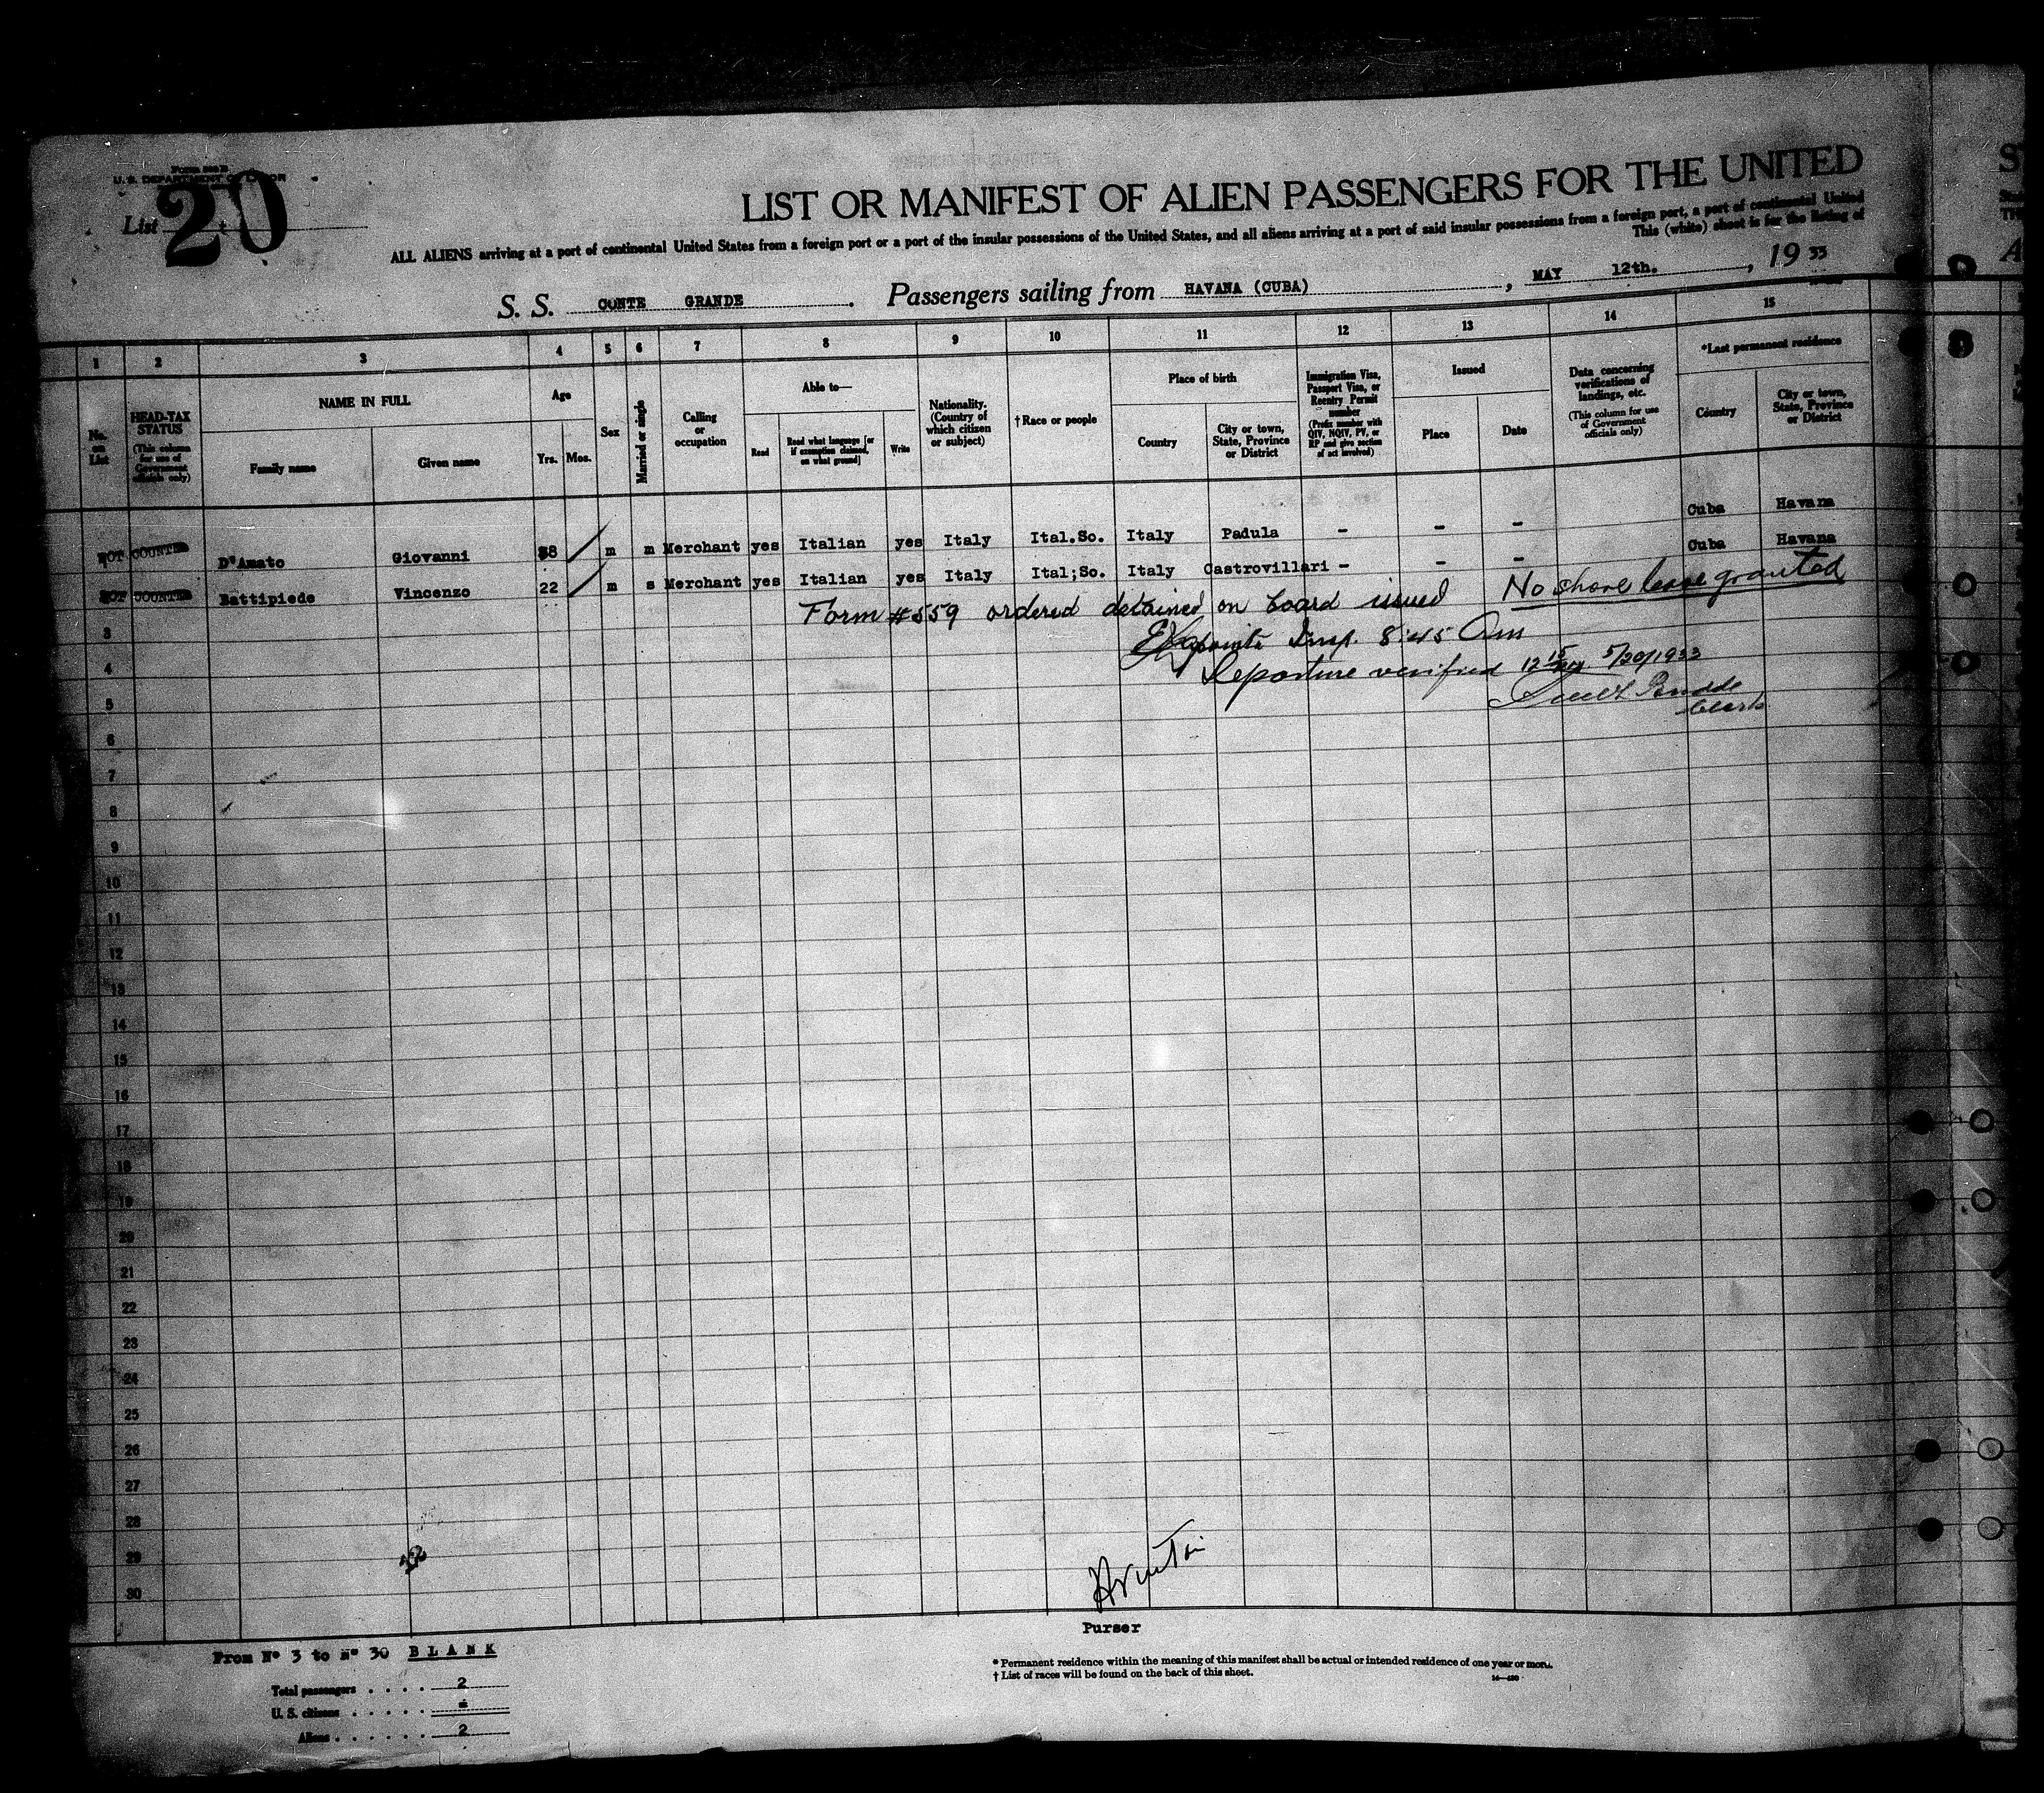 Form 500 B
U. S. DEPARTMENT OF LABOR
List 20
LIST OR MANIFEST OF ALIEN PASSENGERS FOR THE UNITED
ALL ALIENS arriving at a port of continental United States from a foreign port or a port of the insular possessions of the United States, and all aliens arriving at a port of said insular possessions from a foreign port, a port of continental United
This (white) sheet is for the listing of
S. S. CONTE GRANDE. Passengers sailing from HAVANA (CUBA), MAY 12th., 1933
1 2 3 4 5 6 7 8 9 10 11 12 13 14 15
No. on List
HEAD-TAX STATUS (This column for use of Government officials only)
NAME IN FULL
Family name
Given name
Age
Yrs. Mos.
Sex
Married or single
Calling or occupation
Able to—
Read
Read what language [or if exemption claimed, on what ground]
Write
Nationality. (Country of which citizen or subject)
†Race or people
Place of birth
Country
City or town, State, Province or District
Immigration Visa, Passport Visa, or Reentry Permit number (Prefix number with QIV, NQIV, PV, or RP and give section of act involved)
Issued
Place
Date
Data concerning verifications of landings, etc. (This column for use of Government officials only)
*Last permanent residence
Country
City or town, State, Province or District
NOT COUNTED D'Amato Giovanni 38 m m Merchant yes Italian yes Italy Ital.So. Italy Padula - - - Cuba Havana
NOT COUNTED Battipiede Vincenzo 22 m s Merchant yes Italian yes Italy Ital;So. Italy Castrovillari - - - Cuba Havana
Form #559 ordered detained on board issued No shore leave granted
3
Insp. 8:45 Am
4
Departure verified 12 15 5/20/1933
5
Clerk
6
7
8
9
10
11
12
13
14
15
16
17
18
19
20
21
22
23
24
25
26
27
28
29
30
Purser
From Nº 3 to Nº 30 BLANK
Total passengers . . . . 2
U. S. citizens . . . . . =
Aliens . . . . . . 2
* Permanent residence within the meaning of this manifest shall be actual or intended residence of one year or more.
† List of races will be found on the back of this sheet.